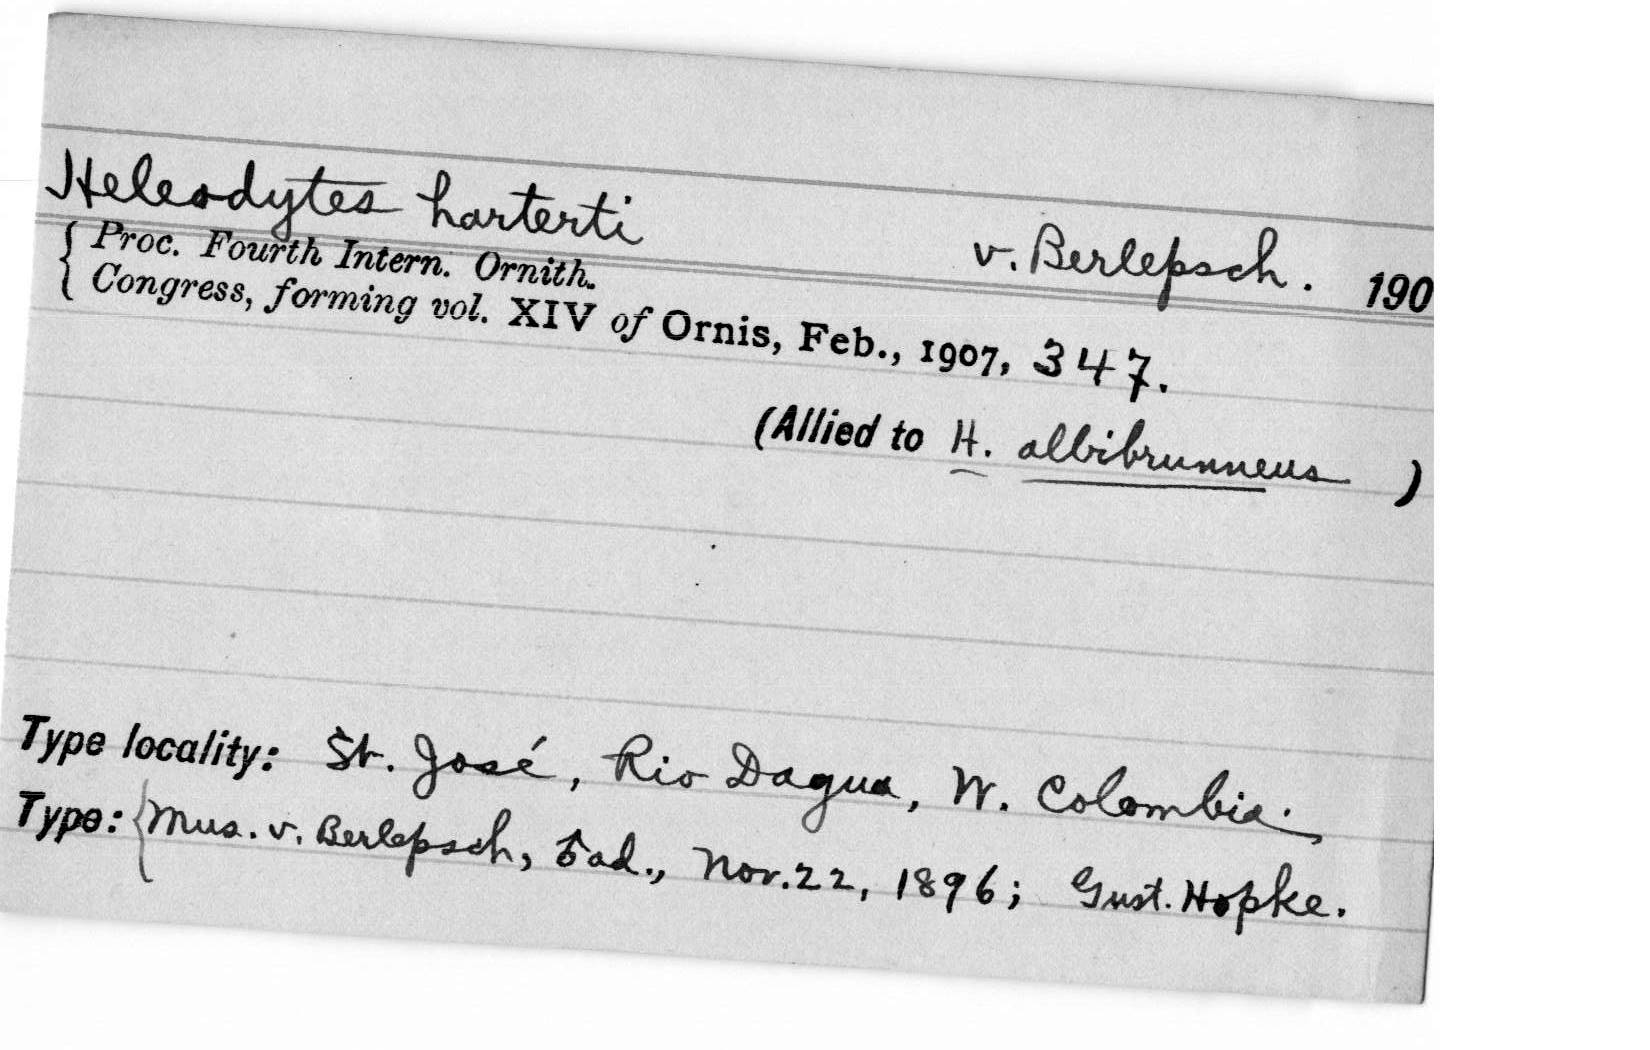 Heleodytes harterti
v. Berlepsch. 190
{ Proc. Fourth Intern. Ornith.
Congress, forming vol. XIV of Ornis, Feb., 1907, 347.
(Allied to H. albibrunneus )
Type locality: St. José, Rio Dagua, W. Colombia.,
Type: { Mus. v. Berlepsch, ad., Nov. 22, 1896; Gust. Hopke.